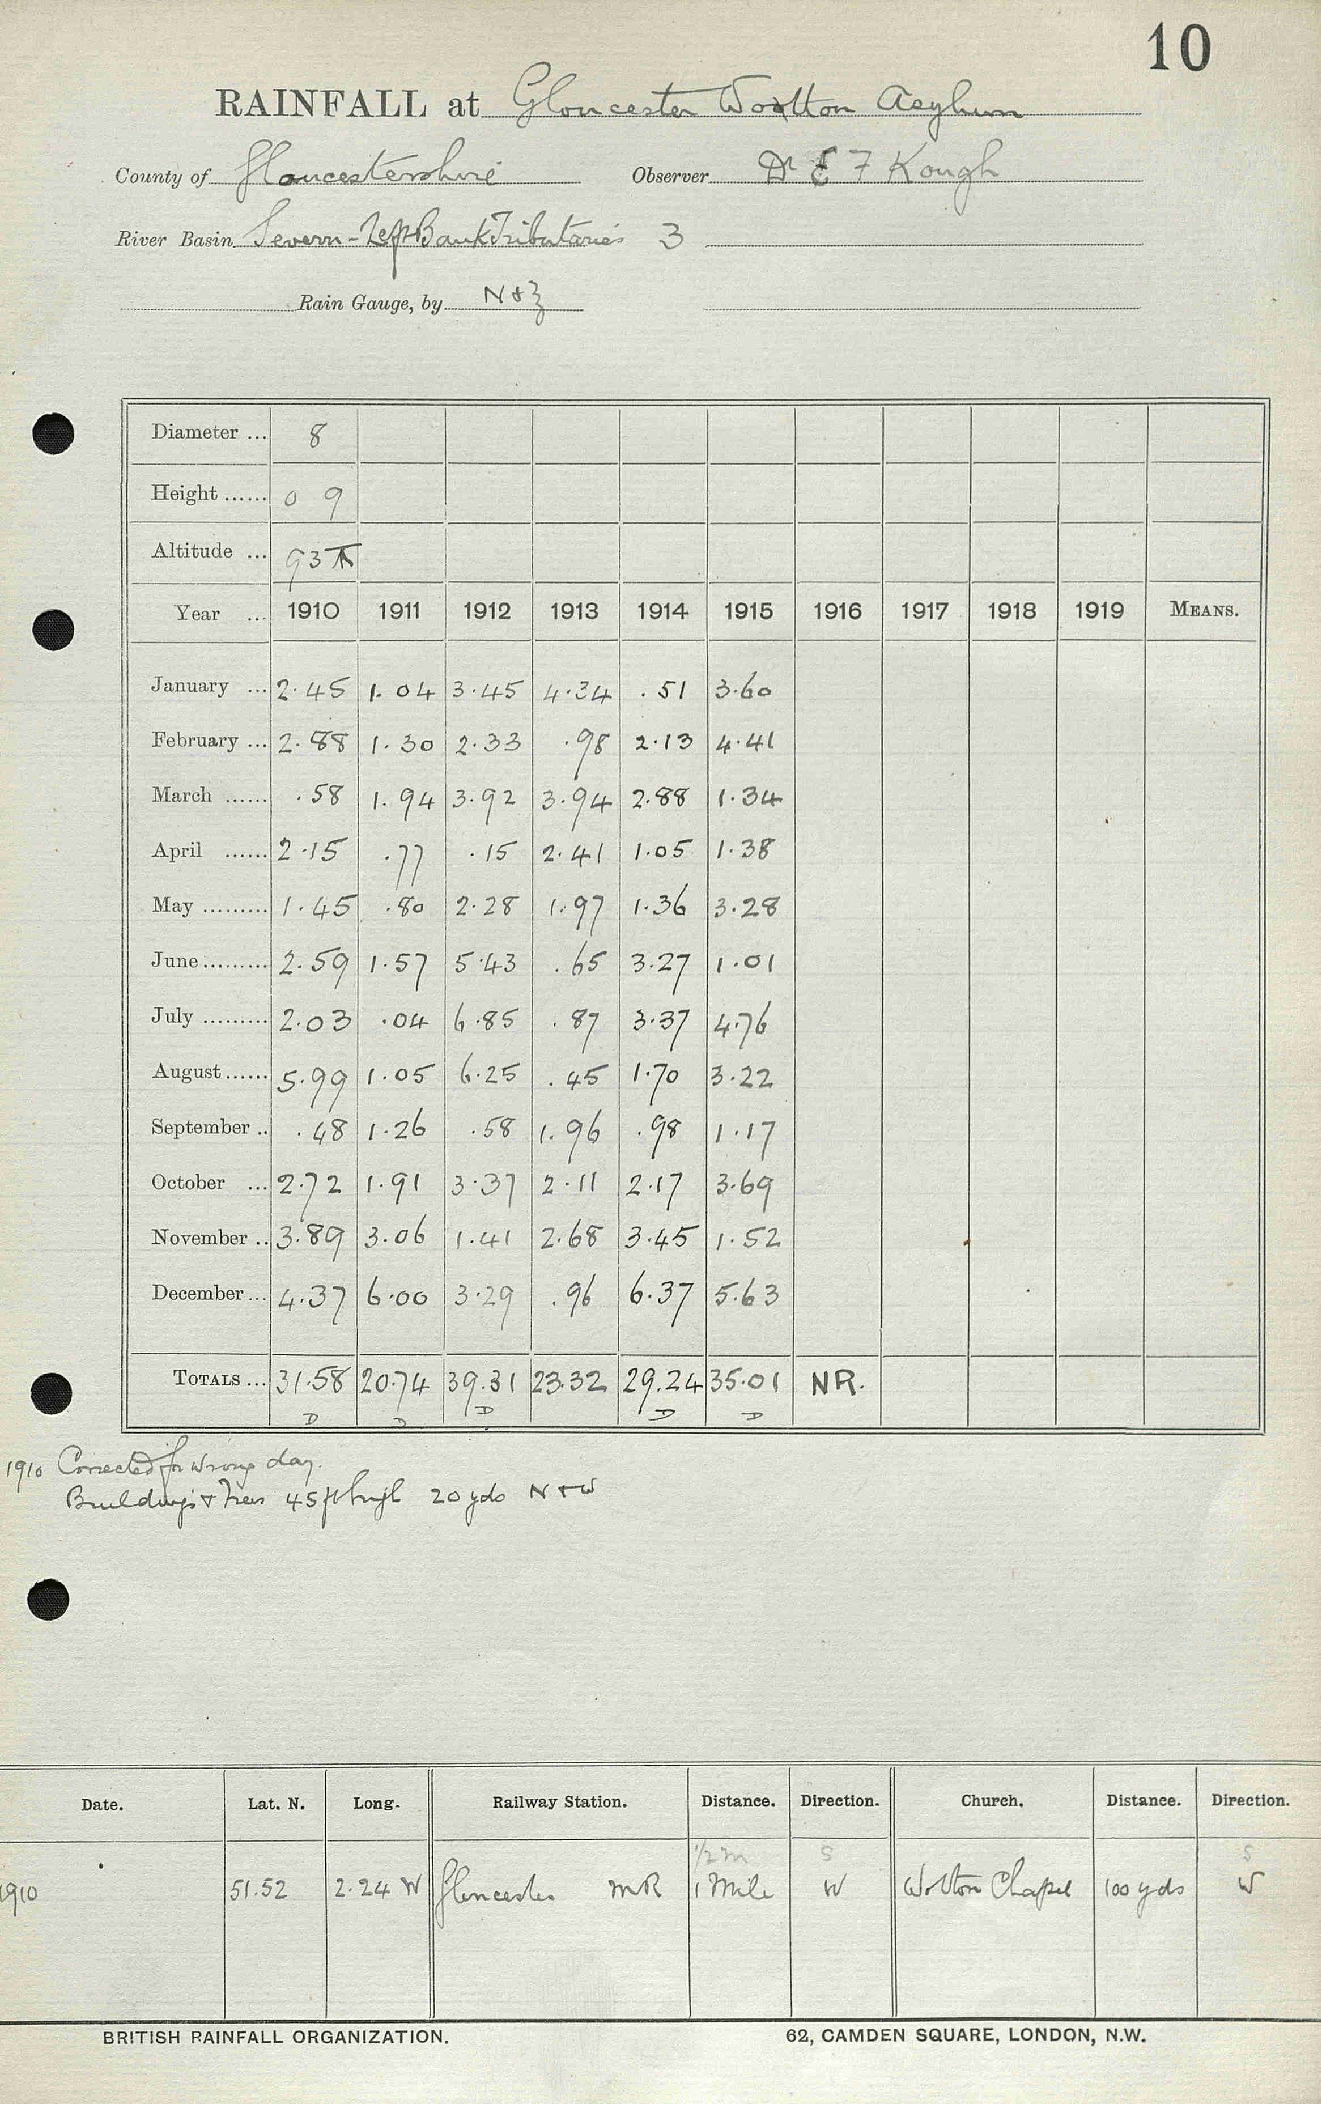 10
RAINFALL at Gloucester Wotton Asylum
County of Gloucestershire Observer Dr E F Kough
River Basin Severn - Left Bank Tributaries 3
Rain Gauge, by N & Z
Diameter ... 8
Height ...... 0 9
Altitude ... 93 T
Year ... 1910 1911 1912 1913 1914 1915 1916 1917 1918 1919 MEANS.
January ... 2.45 1.04 3.45 4.34 .51 3.60
February ... 2.88 1.30 2.33 .98 2.13 4.41
March ...... .58 1.94 3.92 3.94 2.88 1.34
April ...... 2.15 .77 .15 2.41 1.05 1.38
May ......... 1.45 .80 2.28 1.97 1.36 3.28
June ......... 2.59 1.57 5.43 .65 3.27 1.01
July ......... 2.03 .04 6.85 .87 3.37 4.76
August ...... 5.99 1.05 6.25 .45 1.70 3.22
September .. .48 1.26 .58 1.96 .98 1.17
October ... 2.72 1.91 3.37 2.11 2.17 3.69
November .. 3.89 3.06 1.41 2.68 3.45 1.52
December ... 4.37 6.00 3.29 .96 6.37 5.63
TOTALS ... 31.58 20.74 39.31 23.32 29.24 35.01 NR.
D D D D D
1910 Corrected for wrong day.
Buildings & Trees 45 ft high 20 yds N & W
Date. Lat. N. Long. Railway Station. Distance. Direction. Church. Distance. Direction.
1/2 m S S
1910 51.52 2.24 W Gloucester MR 1 Mile W Wotton Chapel 100 yds W
BRITISH RAINFALL ORGANIZATION. 62, CAMDEN SQUARE, LONDON, N.W.